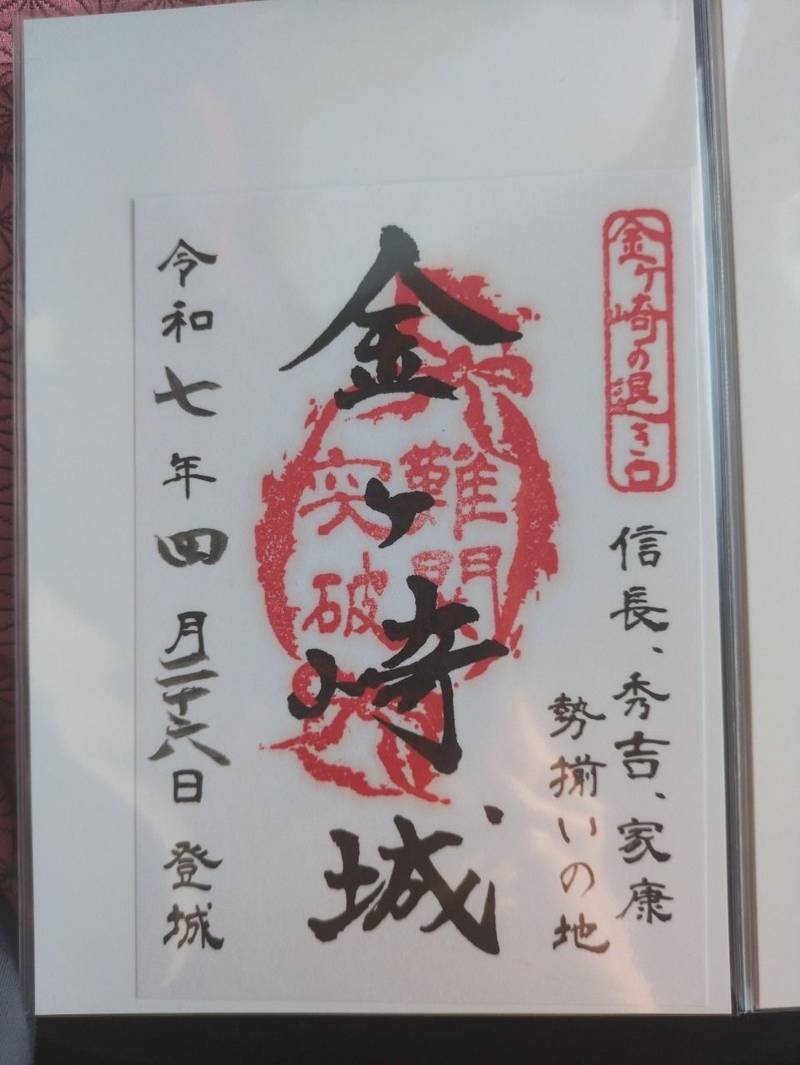 金ケ崎の退き口
信長、秀吉、家康
勢揃いの地
金ヶ崎城
難関
突破
令和七年四月二十六日 登城